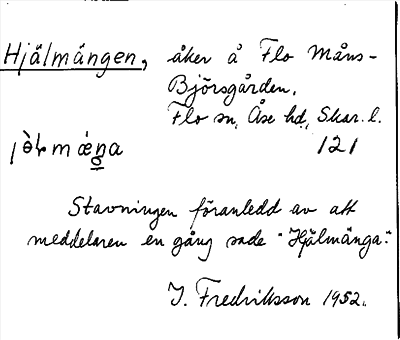 Hjälmängen, åker å Flo Måns-
Björsgården,
Flo sn, Åse hd, Skar. l.
121
Stavningen föranledd av att
meddelaren en gång sade "Hjälmänga".
I. Fredriksson 1952.